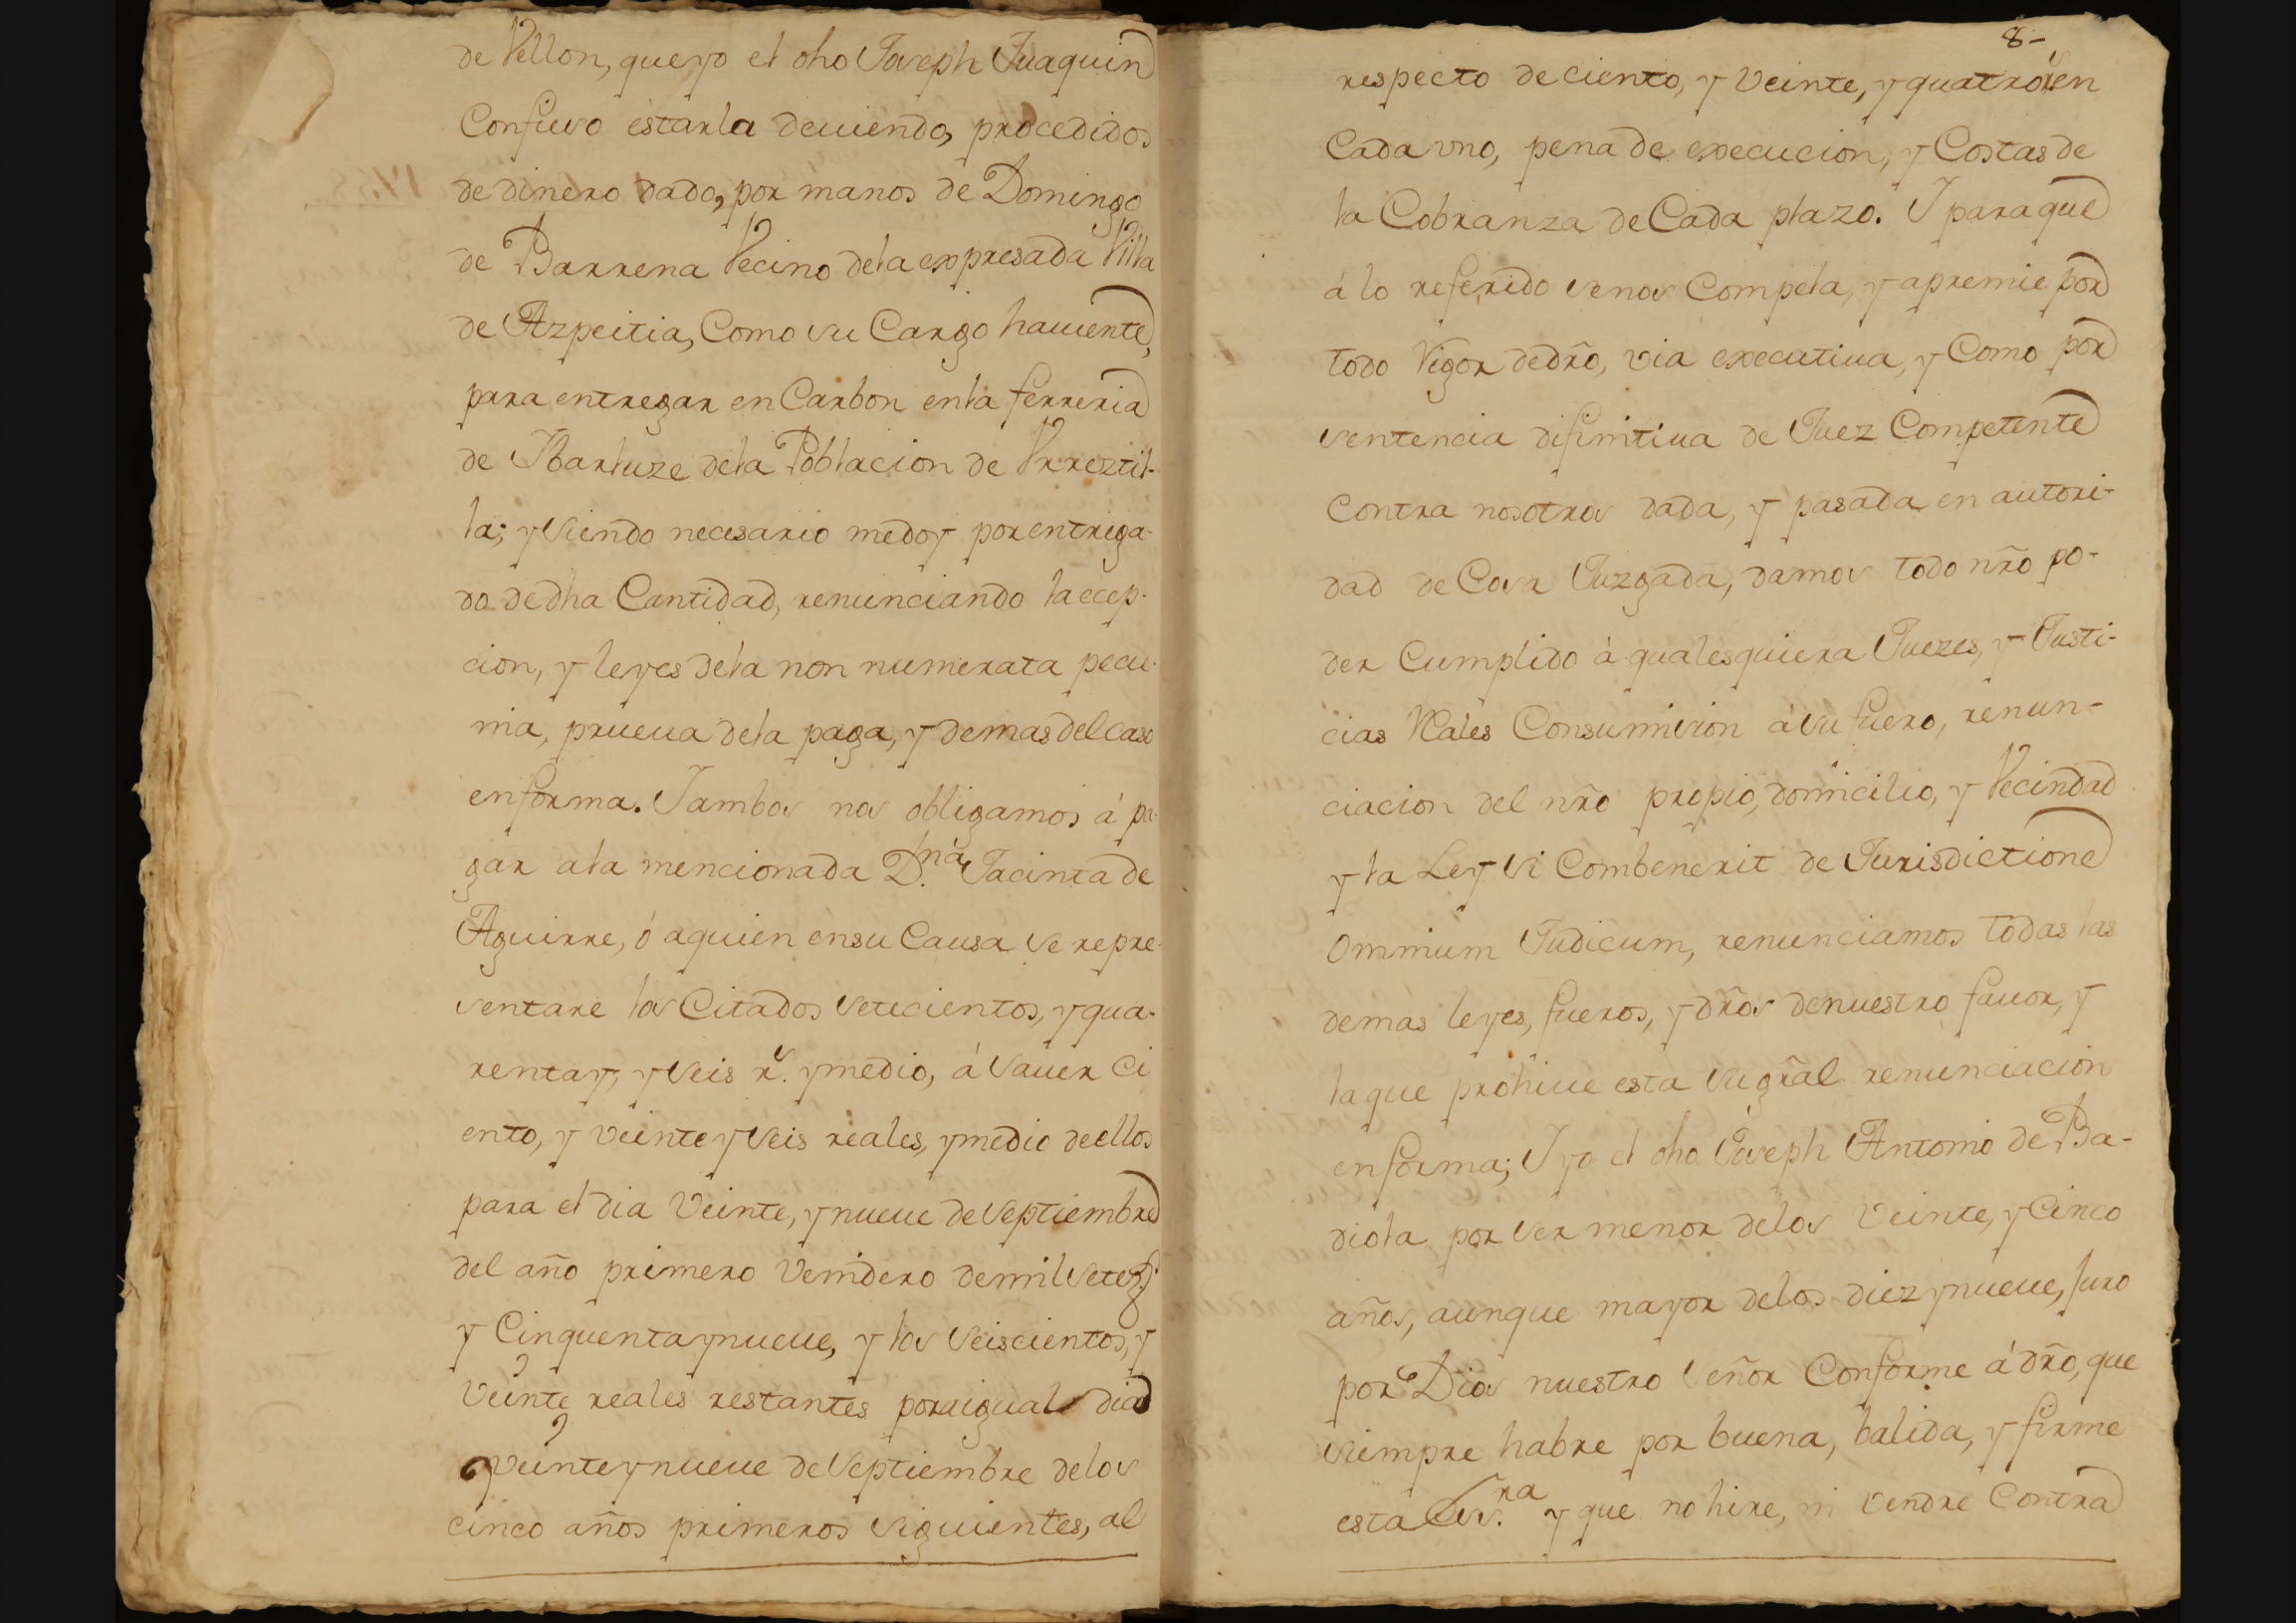 de Vellon, que yo el dho Joseph Juaquin
Confieso estarla deuiendo, procedidos
de dinero dado, por manos de Domingo
de Barrena Vecino dela expresada Villa
de Azpeitia, Como su Cargo hauiente,
para entregar en Carbon enla ferreria
de Ybarluze dela Poblacion de Vrreztil-
la; y siendo necesario medoy por entrega-
do de dha Cantidad, renunciando la ecep-
cion, y leyes dela non numerata pecu-
nia, prueua dela paga, y demas del caso
enforma. Y ambos nos obligamos á pa-
gar ala mencionada D.ña Jacinta de
Aguirre, ó aquien ensu Causa se repre-
sentare los Citados setecientos, y qua-
renta y, y seis rs. y medio, á sauer Ci
ento, y veinte y seis reales, y medio de ellos
para el dia Veinte, y nueue de septiembre
del año primero Venidero de mil setezs.
y Cinquenta y nueue, y los seiscientos, y
Veinte reales restantes para igual dia
Veinte y nueue de septiembre delos
cinco años primeros siguientes, al
8-
respecto de ciento, y Veinte, y quatro rs en
Cada vno, pena de execucion, y Costas de
la Cobranza de Cada plazo. Y paraque
á lo referido senos Compela, y apremie por
todo Vigor dedro, via executiua, y Como por
sentencia difinitiua de Juez Competente
Contra nosotros dada, y pasada en autori-
dad de Cosa Juzgada, damos todo nro po-
der Cumplido á qualesquiera Juezes, y Justi-
cias Rales Consumision ásu fuero, renun-
ciacion del nro propio, domicilio, y Vecindad
y la Ley si Combenerit de Jurisdictione
Omnium Judicum, renunciamos todas las
demas leyes, fueros, y dros denuestro fauor, y
laque prohiue esta su gral renunciacion
enforma; Y yo el dho Joseph Antonio de Ba-
diola por ser menor delos Veinte, y Cinco
años, aunque mayor delos diez y nueue, Juro
por Dios nuestro señor Conforme á dro, que
siempre habre por buena, balida, y firme
esta Esc.ra y que no hire, ni vendre Contra